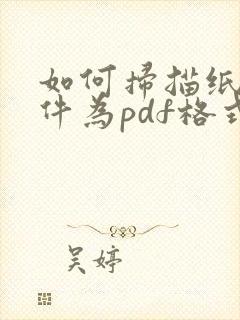 如何掃描纸
件為pdf格式
吴婷